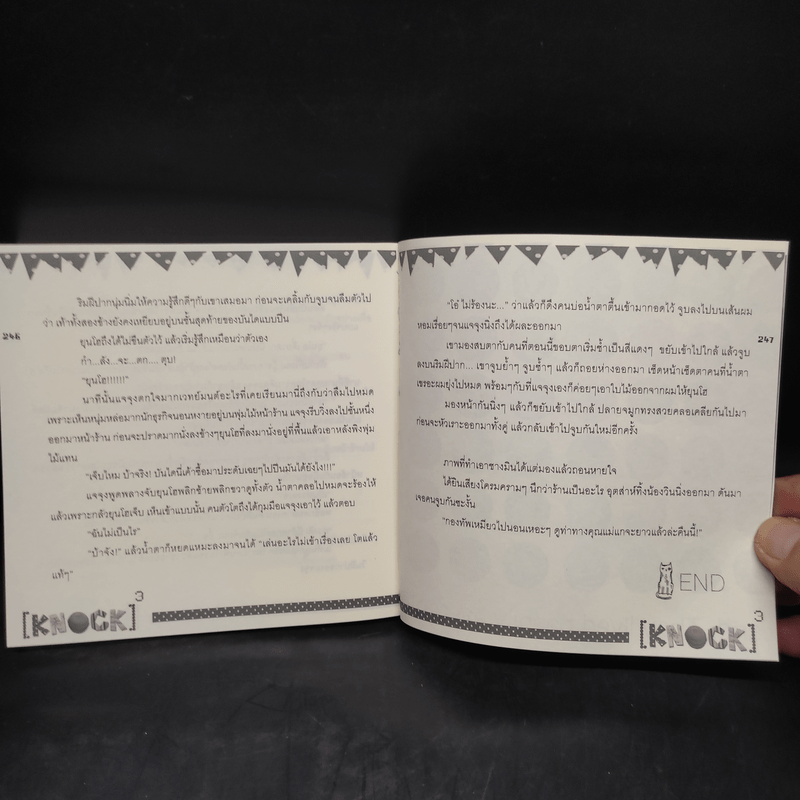 ริมฝีปากนุ่มนิ่มให้ความรู้สึกดีๆกับเขาเสมอมา ก่อนจะเคลิ้มกับจูบจนลืมตัวไป
ว่า เท้าทั้งสองข้างยังคงเหยียบอยู่บนขั้นสุดท้ายของบันไดแบบปีน
246
ยุนโฮถึงได้ไม่ขืนตัวไว้ แล้วเริ่มรู้สึกเหมือนว่าตัวเอง
กำ...ลัง...จะ...ตก.... ตุบ!
"ยุนโฮ!!!!!!"
นาทีนั้นแจจุงตกใจมากเวทย์มนต์อะไรที่เคยเรียนมานี่ถึงกับว่าลืมไปหมด
เพราะเห็นหนุ่มหล่อมาดนักธุรกิจนอนหงายอยู่บนพุ่มไม้หน้าร้าน แจจุงรีบวิ่งลงไปชั้นหนึ่ง
ออกมาหน้าร้าน ก่อนจะปราดมานั่งลงข้างๆยุนโฮที่ลงมานั่งอยู่ที่พื้นแล้วเอาหลังพิงพุ่ม
ไม้แทน
"เจ็บไหม บ้าจริง! บันไดนี่เค้าซื้อมาประดับเฉยๆไปปีนมันได้ยังไง!!!"
แจจุงพูดพลางจับยุนโฮพลิกซ้ายพลิกขวาดูทั้งตัว น้ำตาคลอไปหมดจะร้องไห้
แล้วเพราะกลัวยุนโฮเจ็บ เห็นเข้าแบบนั้น คนตัวโตถึงได้กุมมือแจจุงเอาไว้ แล้วตอบ
"ฉันไม่เป็นไร"
"บ้าจัง!" แล้วน้ำตาก็หยดแหมะลงมาจนได้ "เล่นอะไรไม่เข้าเรื่องเลย โตแล้ว
แท้ๆ"
[KNOCK]3
"โอ๋ ไม่ร้องนะ..." ว่าแล้วก็ดึงคนบ่อน้ำตาตื้นเข้ามากอดไว้ จูบลงไปบนเส้นผม
หอมเรื่อยๆจนแจจุงนิ่งถึงได้ผละออกมา
247
เขามองสบตากับคนที่ตอนนี้ขอบตาเริ่มช้ำเป็นสีแดงๆ ขยับเข้าไปใกล้ แล้วจูบ
ลงบนริมฝีปาก... เขาจูบย้ำๆ จูบซ้ำๆ แล้วก็ถอยห่างออกมา เช็ดหน้าเช็ดตาคนที่น้ำตา
เซรอะผมยุ่งไปหมด พร้อมๆกับที่แจจุงเองก็ค่อยๆเอาใบไม้ออกจากผมให้ยุนโฮ
มองหน้ากันนิ่งๆ แล้วก็ขยับเข้าไปใกล้ ปลายจมูกทรงสวยคลอเคลียกันไปมา
ก่อนจะหัวเราะออกมาทั้งคู่ แล้วกลับเข้าไปจูบกันใหม่อีกครั้ง
ภาพที่ทำเอาชางมินได้แต่มองแล้วถอนหายใจ
ได้ยินเสียงโครมครามๆ นึกว่าร้านเป็นอะไร อุตส่าห์ทิ้งน้องวินนิ่งออกมา ดันมา
เจอคนจูบกันซะงั้น
"กองทัพเหมียวไปนอนเหอะๆ ดูท่าทางคุณแม่แกจะยาวแล้วล่ะคืนนี้!"
END
[KNOCK]3